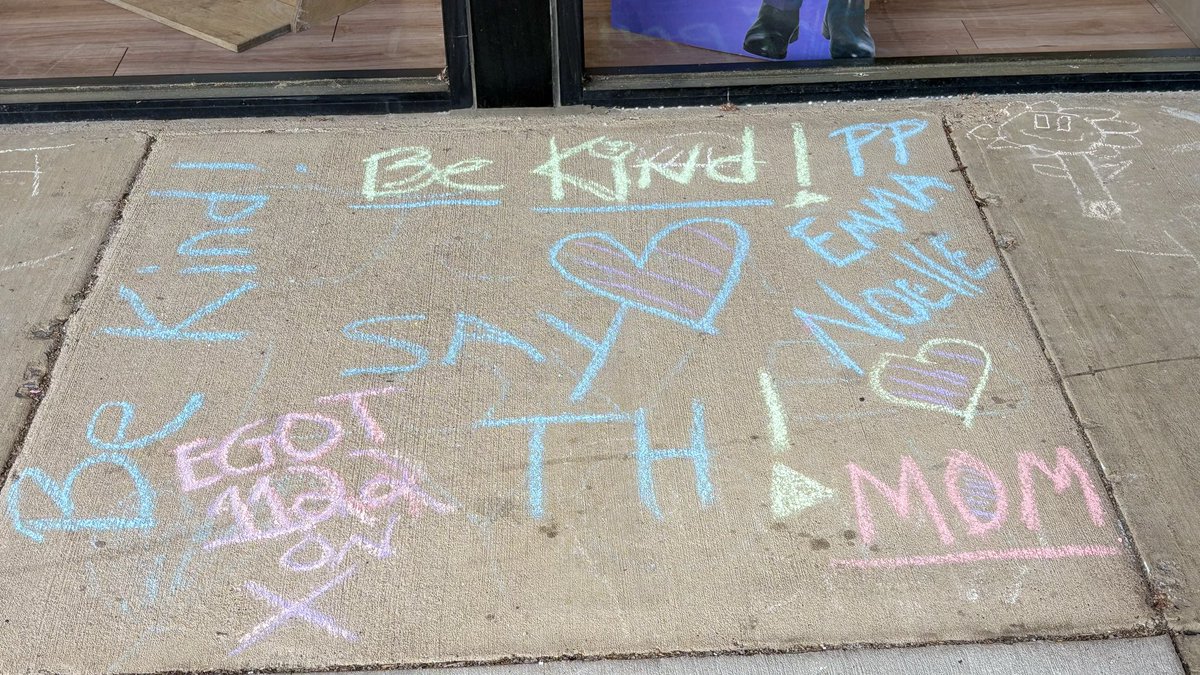 Be Kind!
Be Kind!
PP
EMMA
Noelle
SAY
TH!
EGOT
1122
ON
X
MOM